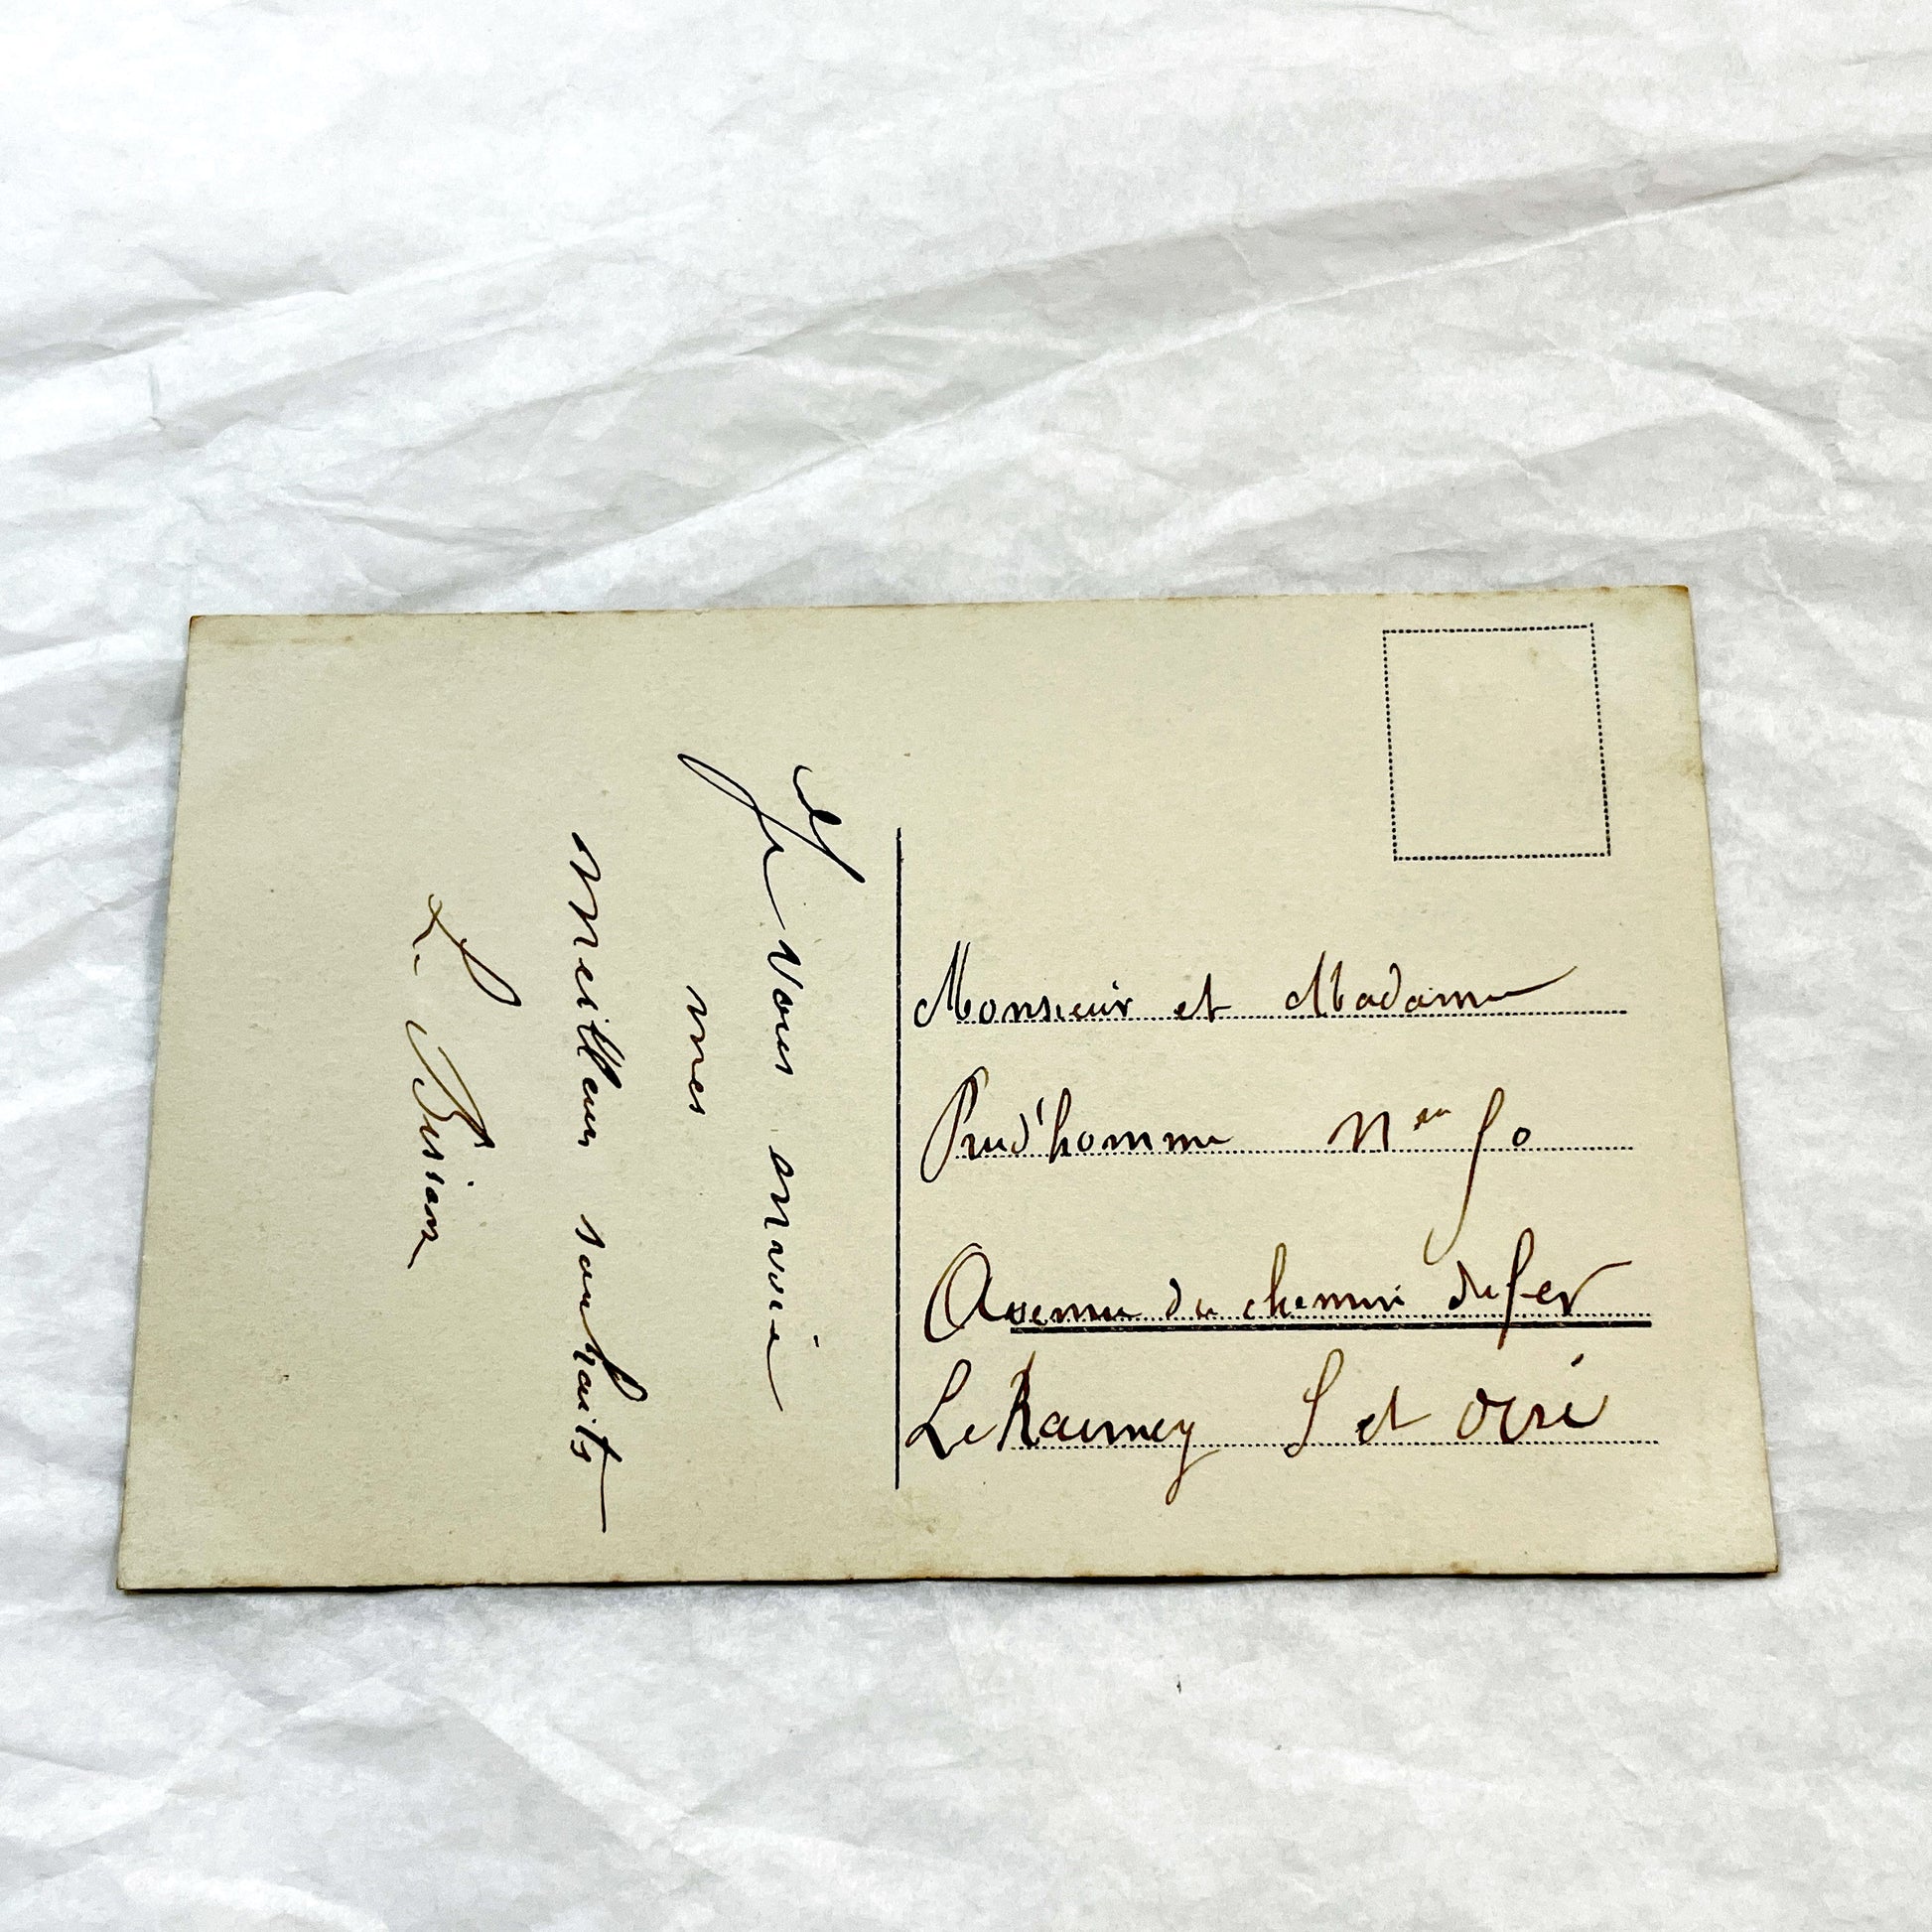 Je vous envoie
mes
meilleurs souhaits
L. Buisson
Monsieur et Madame
Prud'homme
Avenue du chemin de fer
Le Raincy S et Oise